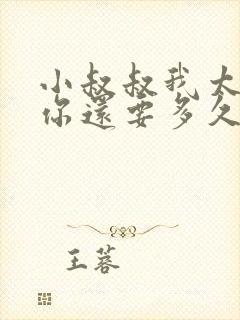 小叔叔我大
你還要多久
王蓉